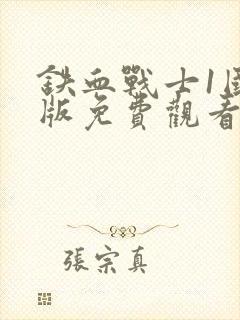 鉄血戰士1國
版免費觀看
張宗真